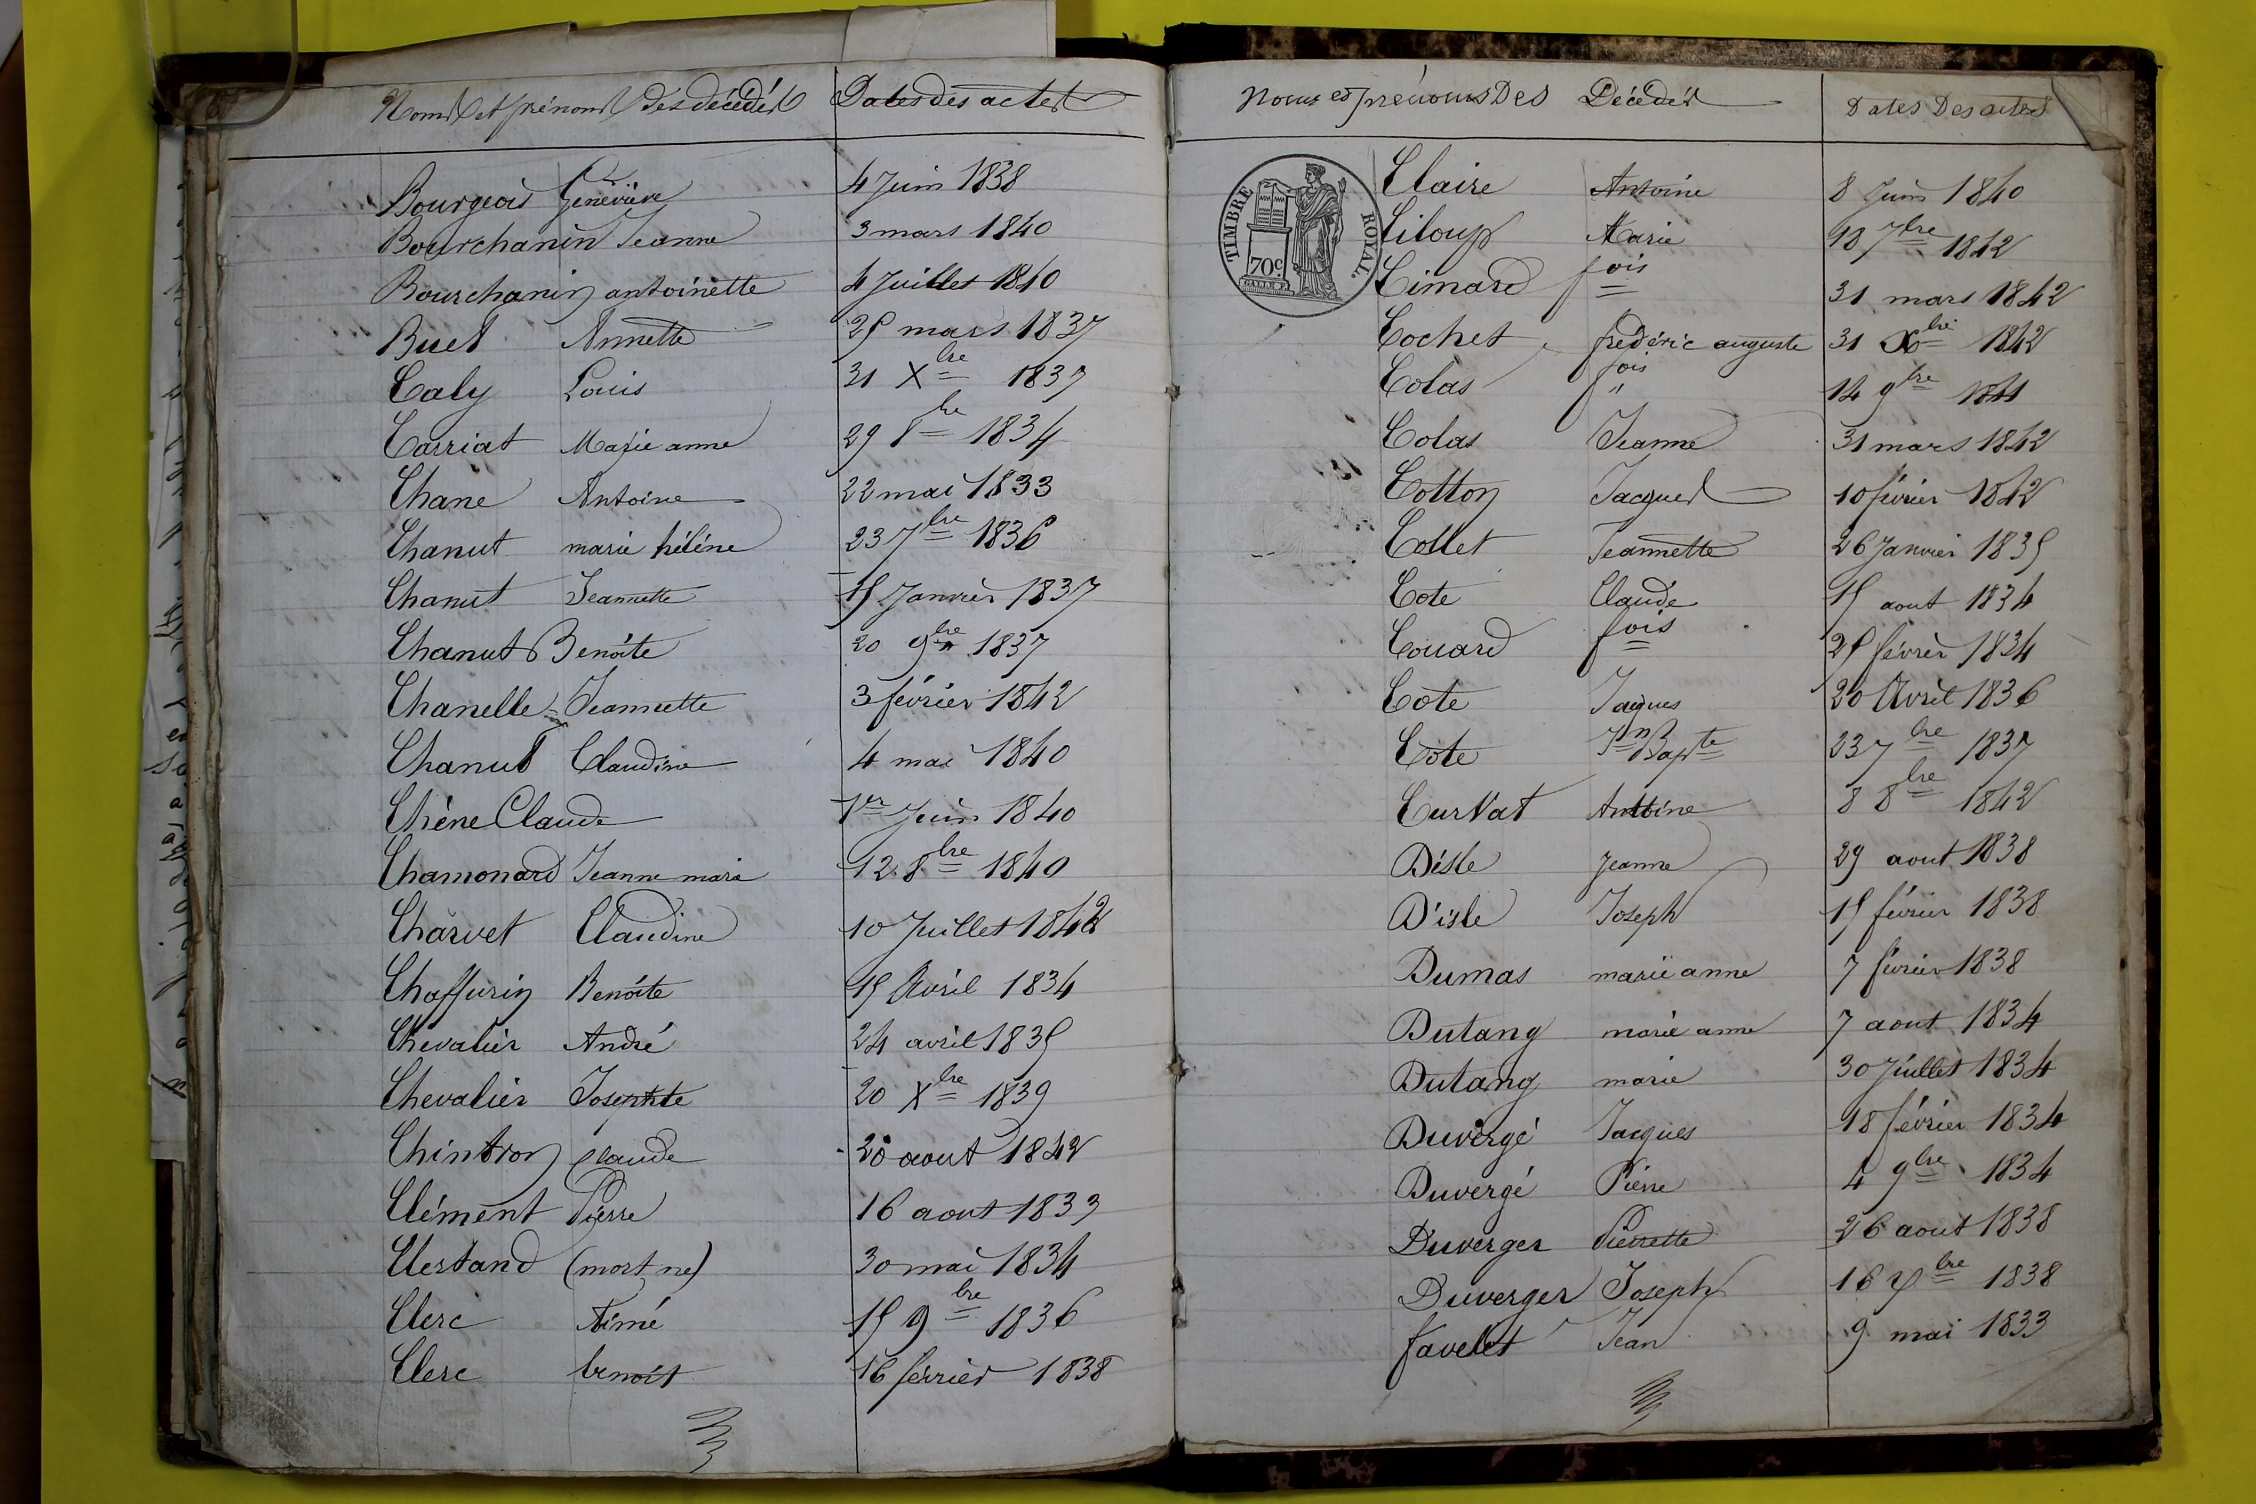 Noms et prénoms des décédés Dates des actes
Bourgeois Geneviève 4 Juin 1838
Bourchanin Jeanne 3 mars 1840
Bourchanin antoinette 4 Juillet 1840
Buet Annette 25 mars 1837
Caly Louis 31 Xbre 1837
Carriat Marie anne 29 8bre 1834
Chane Antoine 22 mai 1833
Chanut marie hélène 23 7bre 1836
Chanut Jeannette 15 Janvier 1837
Chanut Benoite 20 9bre 1837
Chanelle Jeannette 3 février 1842
Chanut Claudine 4 mai 1840
Chène Claude 1er Juin 1840
Chamonard Jeanne marie 12 8bre 1840
Charvet Claudine 10 Juillet 1842
Chaffurin Benoite 15 Avril 1834
Chevalier André 24 avril 1835
Chevalier Josephte 20 Xbre 1839
Chintron Claude 20 aout 1842
Clément Pierre 16 aout 1833
Clertand (mort né) 30 mai 1834
Clerc Aimé 15 9bre 1836
Clerc benoit 16 février 1838
Noms et prénoms Des Décédés Dates Des actes
TIMBRE ROYAL.
70c.
Claire Antoine 8 Juin 1840
Ciloup Marie 18 7bre 1842
Cimard fois 31 mars 1842
Cochet frédéric auguste 31 Xbre 1842
Colas fois 14 9bre 1841
Colas Jeanne 31 mars 1842
Cotton Jacques 10 février 1842
Collet Jeannette 26 Janvier 1835
Cote Claude 15 aout 1834
Couard fois 25 février 1834
Cote Jaques 20 Avril 1836
Cote Jn Bapte 23 7bre 1837
Curvat Antoine 8 8bre 1842
Disle Jeanne 29 aout 1838
D'isle Joseph 15 février 1838
Dumas marie anne 7 février 1838
Dutang marie anne 7 aout 1834
Dutang marie 30 Juillet 1834
Duvergé Jacques 18 février 1834
Duvergé Pierre 4 9bre 1834
Duverger Pierrette 26 aout 1838
Duverger Joseph 16 bre 1838
favelet Jean 9 mai 1833